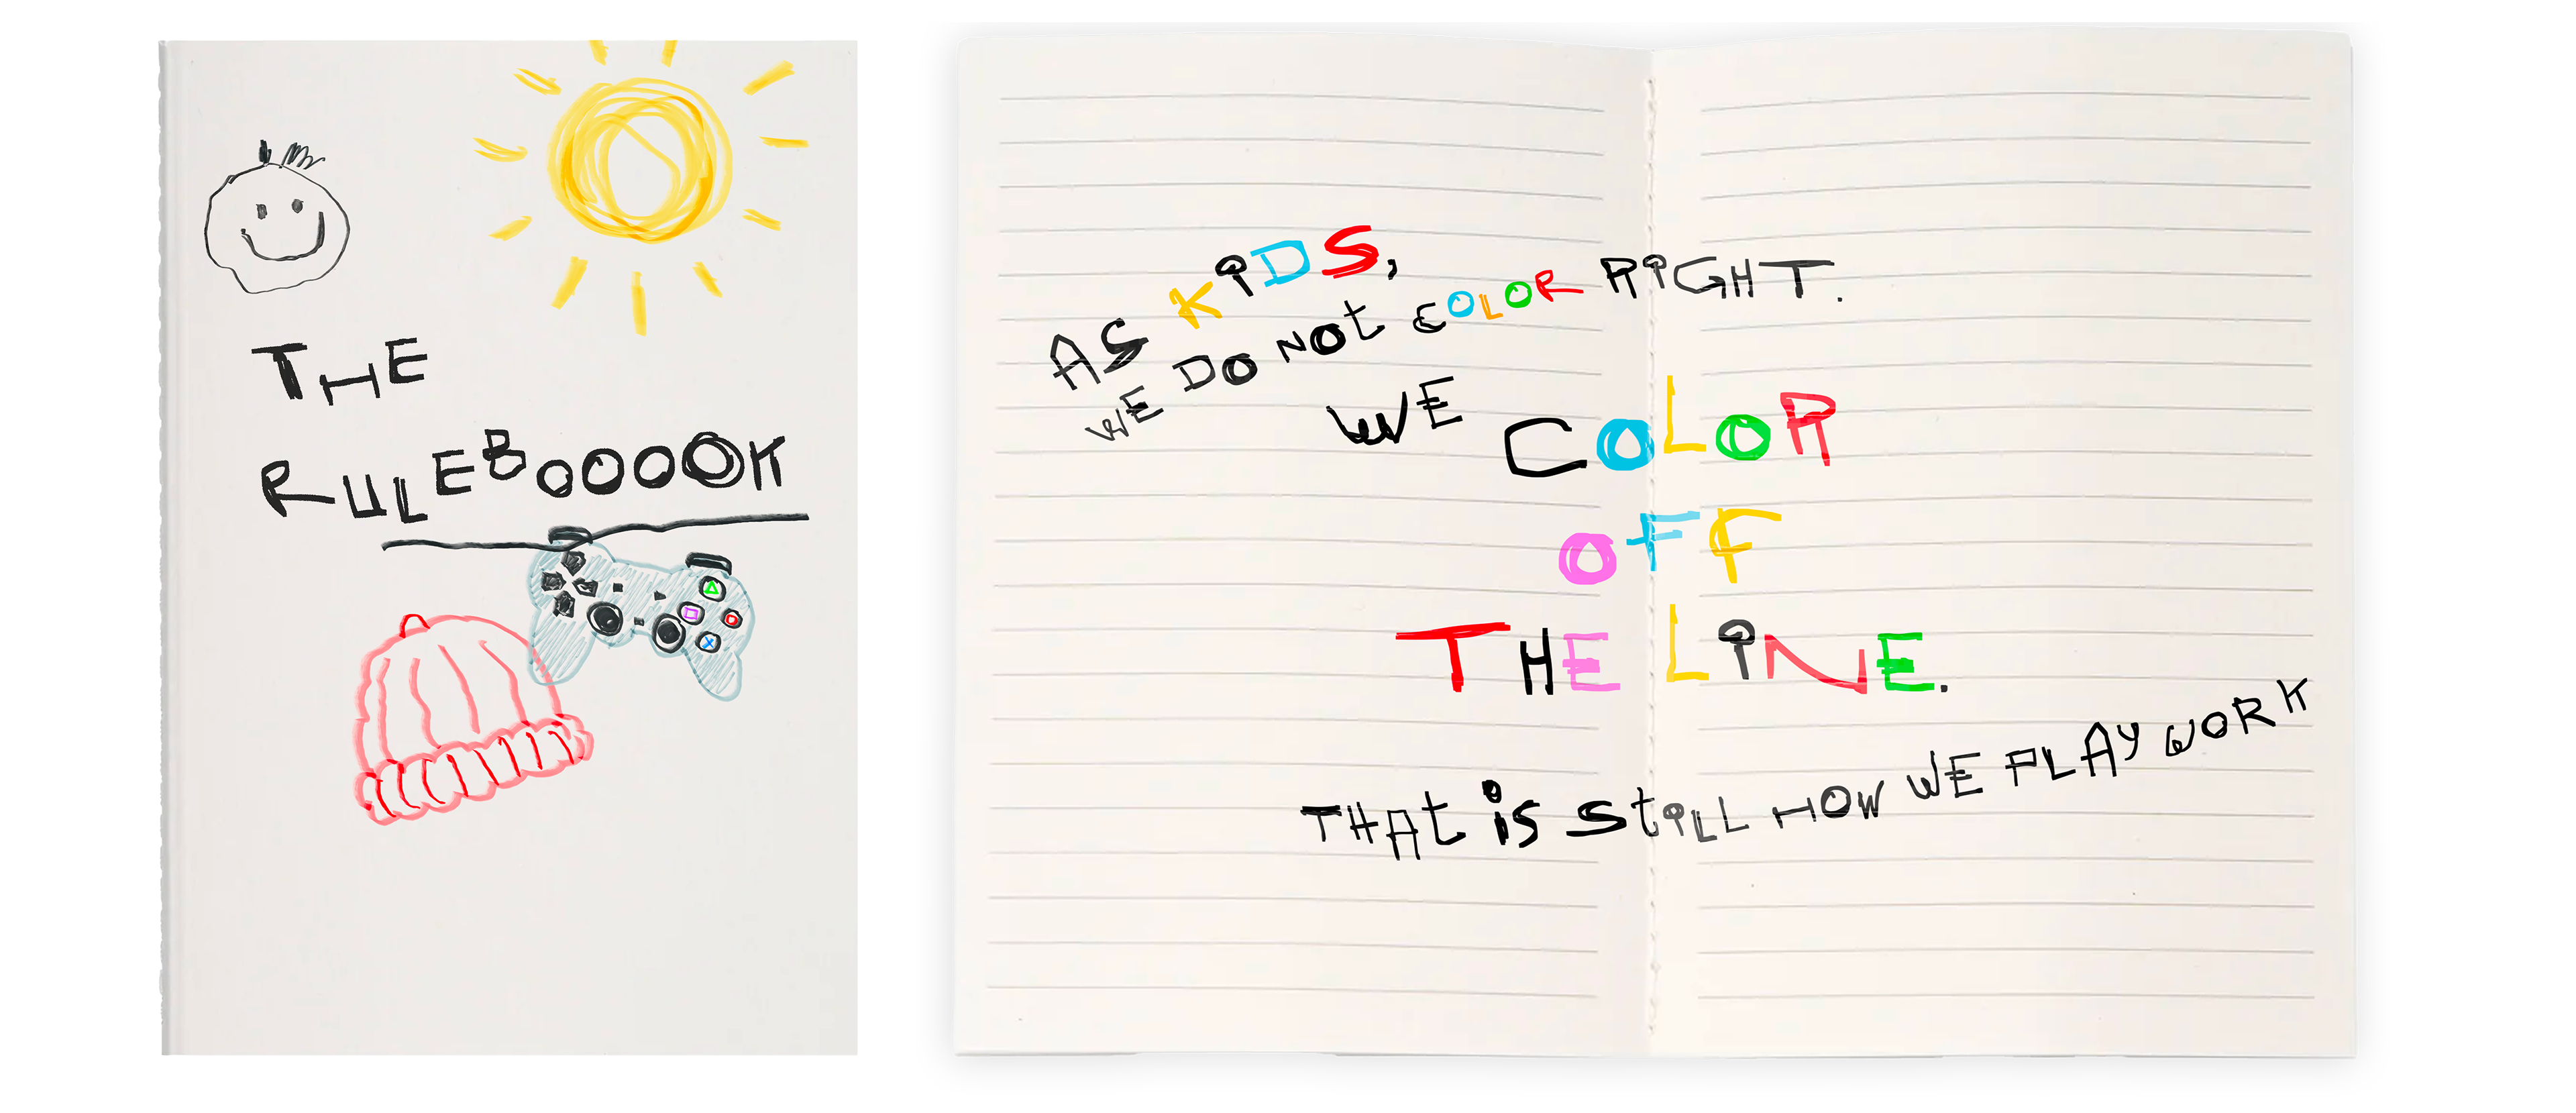 THE
RULEBOOOOK
AS KiDS,
WE DO NOt COLOR RiGHT.
WE COLOR
OFF
THE LiNE.
THAt iS StiLL HOW WE PLAY WORK